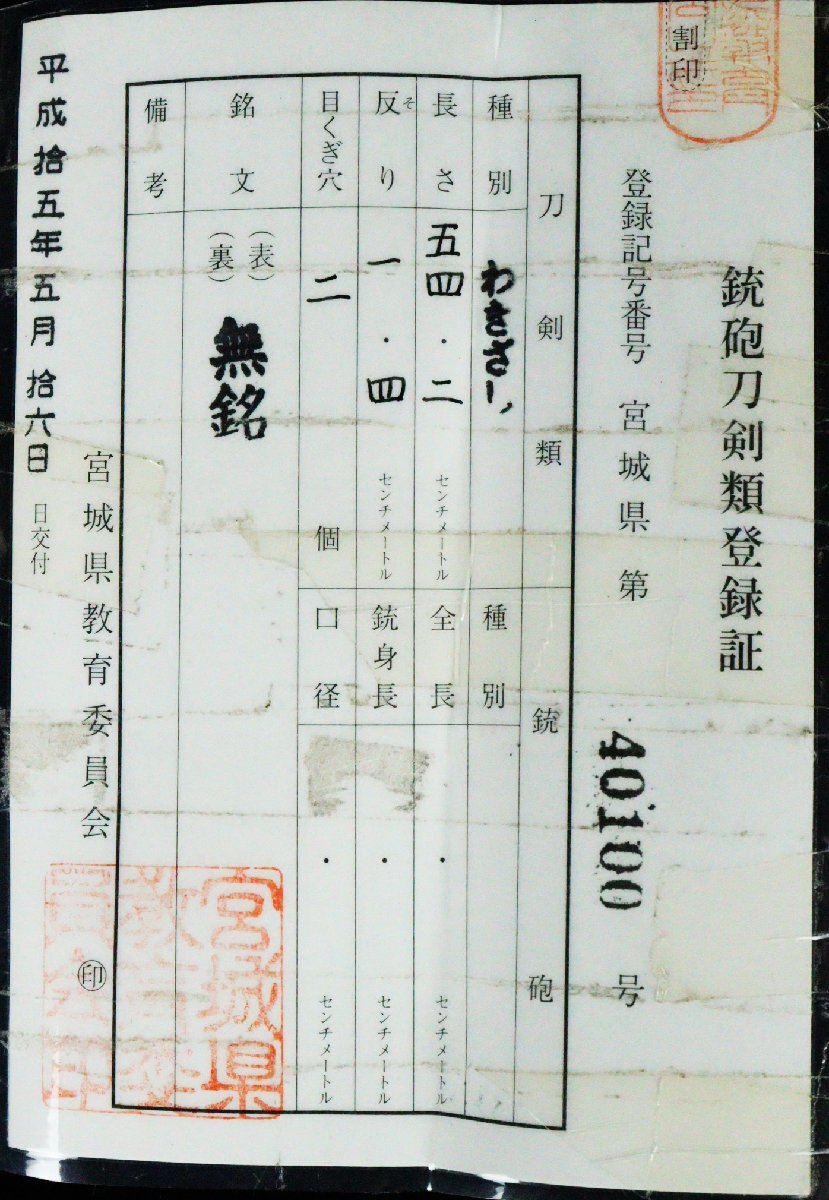 割印
銃砲刀剣類登録証
登録記号番号 宮城県 第 40100 号
刀剣類
種別 わきざし
長さ 五四・二 センチメートル
反り 一・四 センチメートル
そ
目くぎ穴 二 個
銘文 (表) (裏) 無銘
備考
銃砲
種別
全長 ・ センチメートル
銃身長 ・ センチメートル
口径 ・ センチメートル
宮城県教育委員会 印
宮城県
教育委
員会印
平成拾五年五月拾六日 日交付